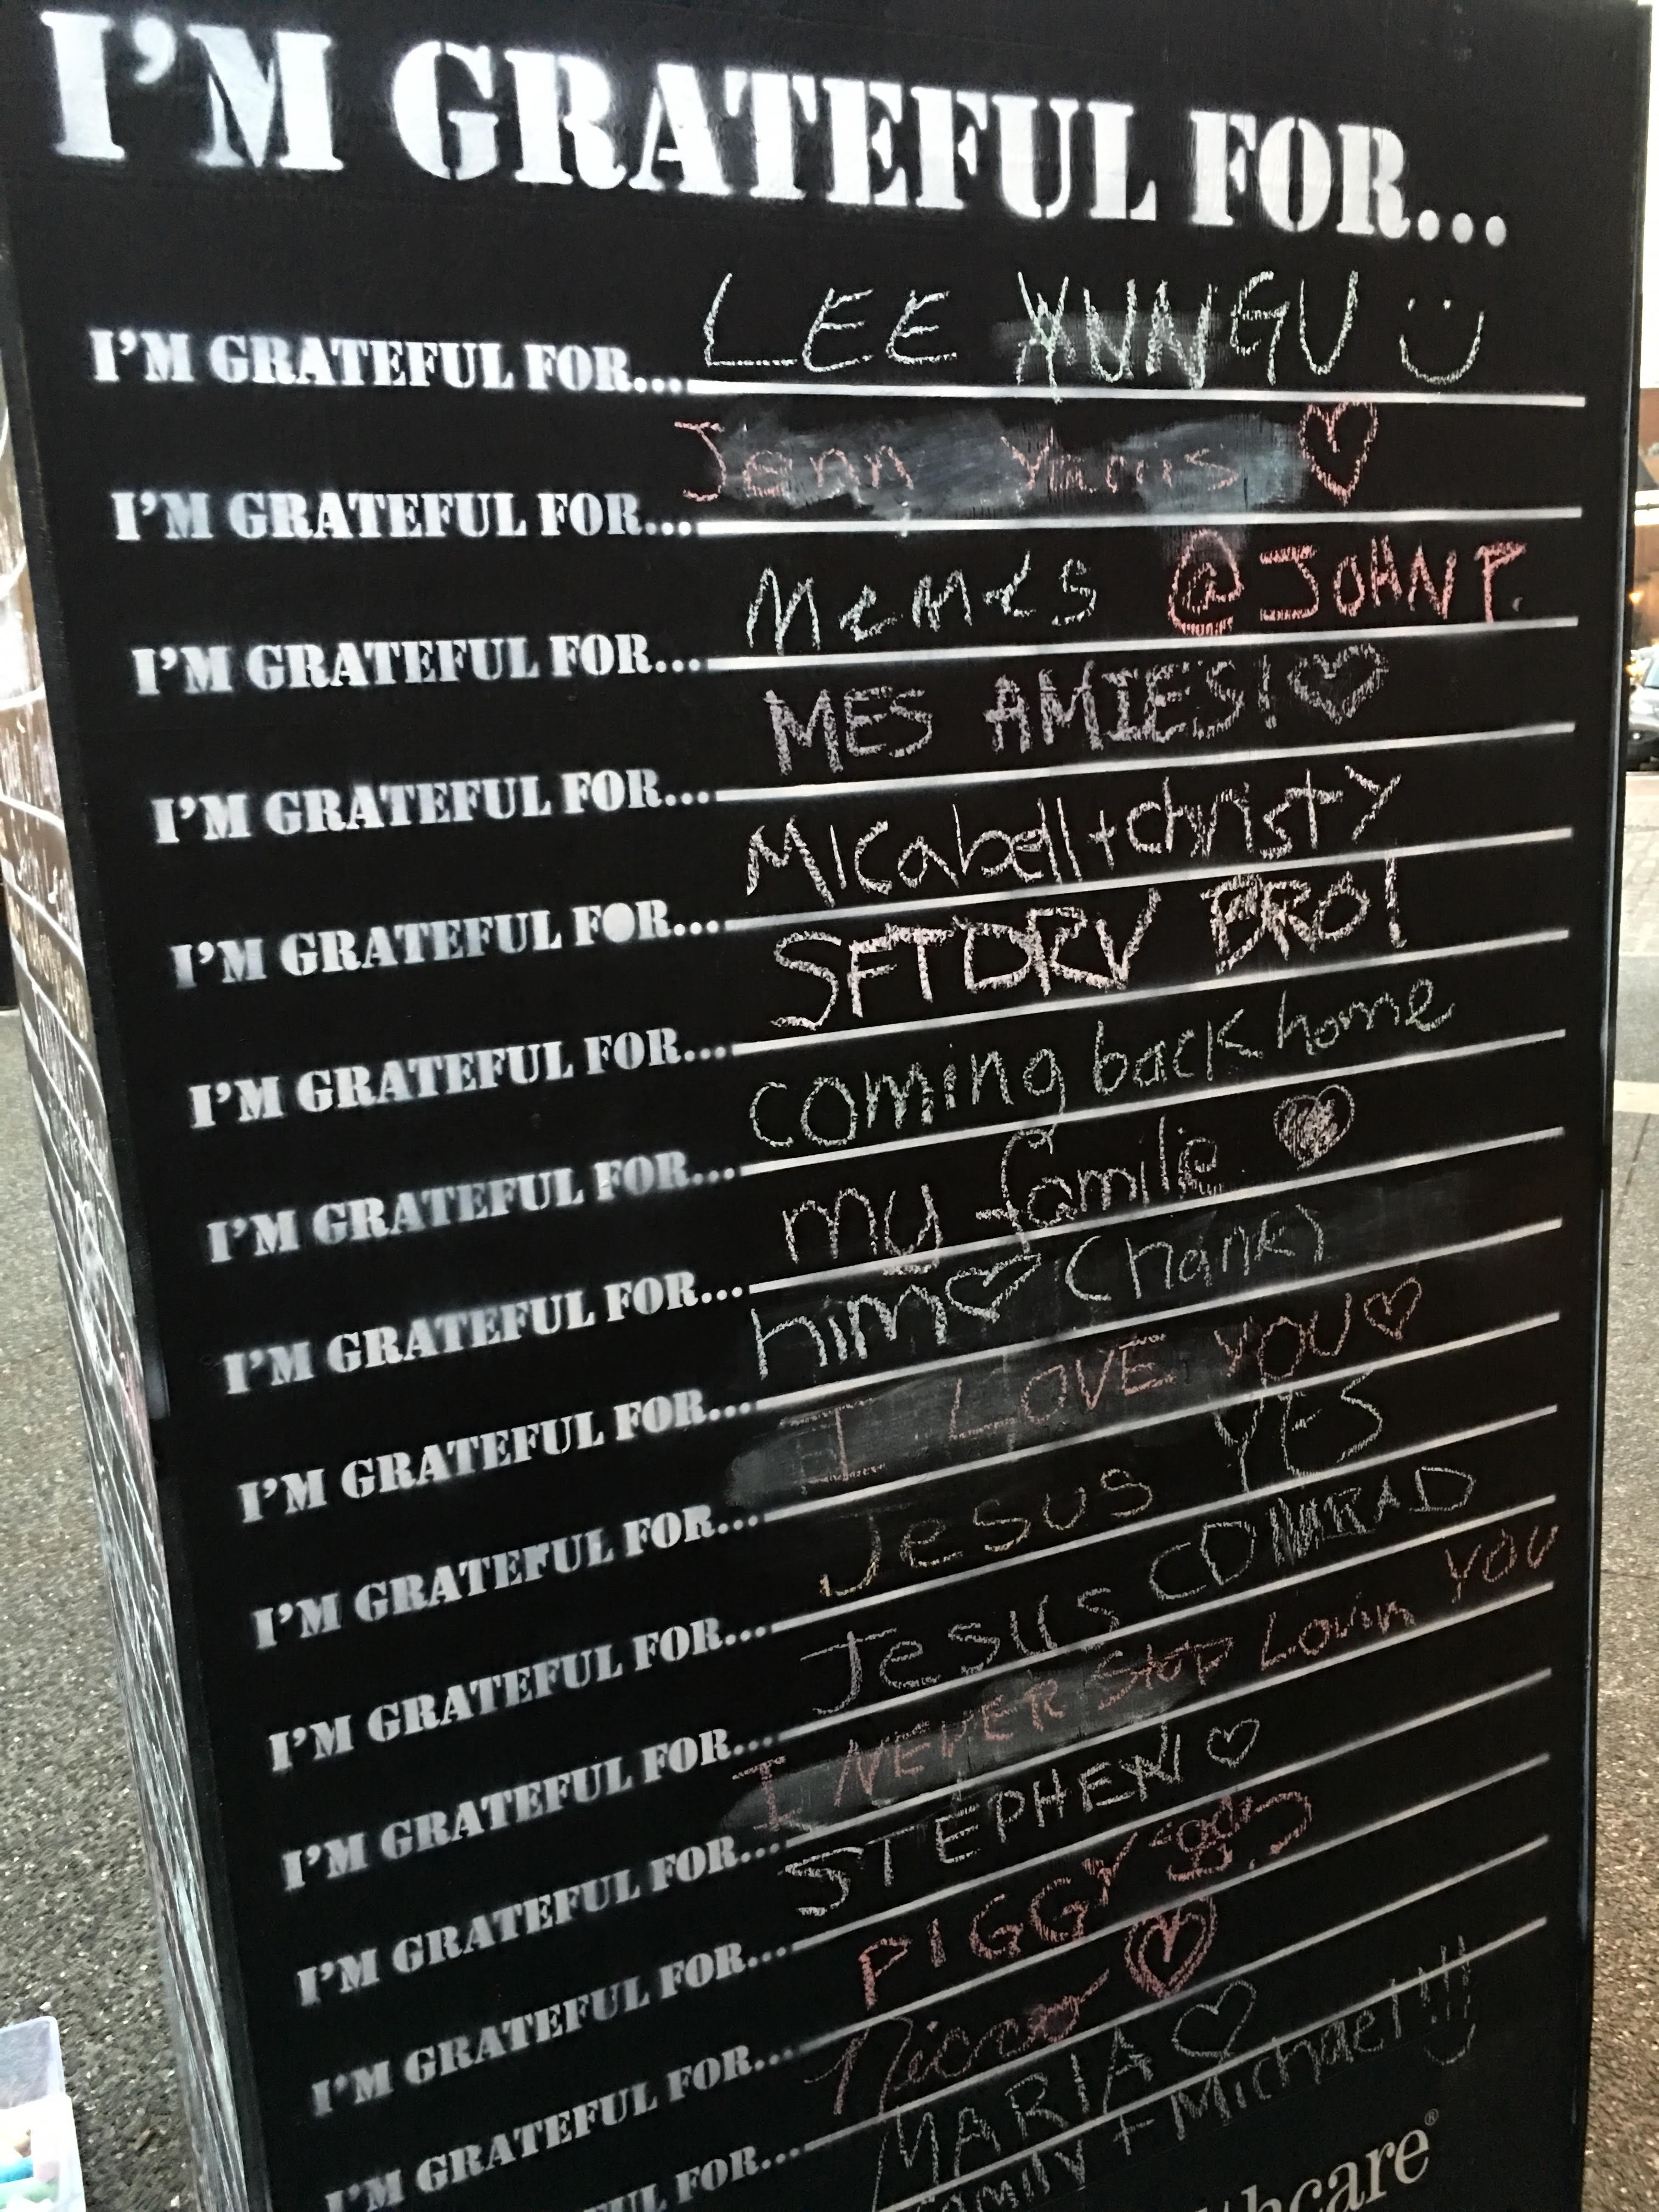 I'M GRATEFUL FOR...
I'M GRATEFUL FOR.... LEE
I'M GRATEFUL FOR.... Jenn
I'M GRATEFUL FOR.... Memes @JOHN P.
I'M GRATEFUL FOR.... MES AMIES!
I'M GRATEFUL FOR.... Micabell + christy
I'M GRATEFUL FOR.... SFTDRV BRO!
I'M GRATEFUL FOR.... coming back home
I'M GRATEFUL FOR.... my famile
I'M GRATEFUL FOR.... him (hank)
I'M GRATEFUL FOR.... I LOVE YOU
I'M GRATEFUL FOR.... Jesus YES
I'M GRATEFUL FOR.... Jesus COMRAD
I'M GRATEFUL FOR.... I NEVER Stop Lovin YOU
I'M GRATEFUL FOR.... STEPHEN
I'M GRATEFUL FOR.... PIGGY
I'M GRATEFUL FOR....
FUL FOR.... MARIA
amily + Michael!!!
thcare®